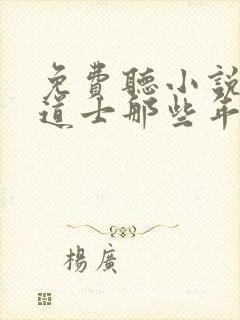 免費聽小說
道士那些年
楊廣